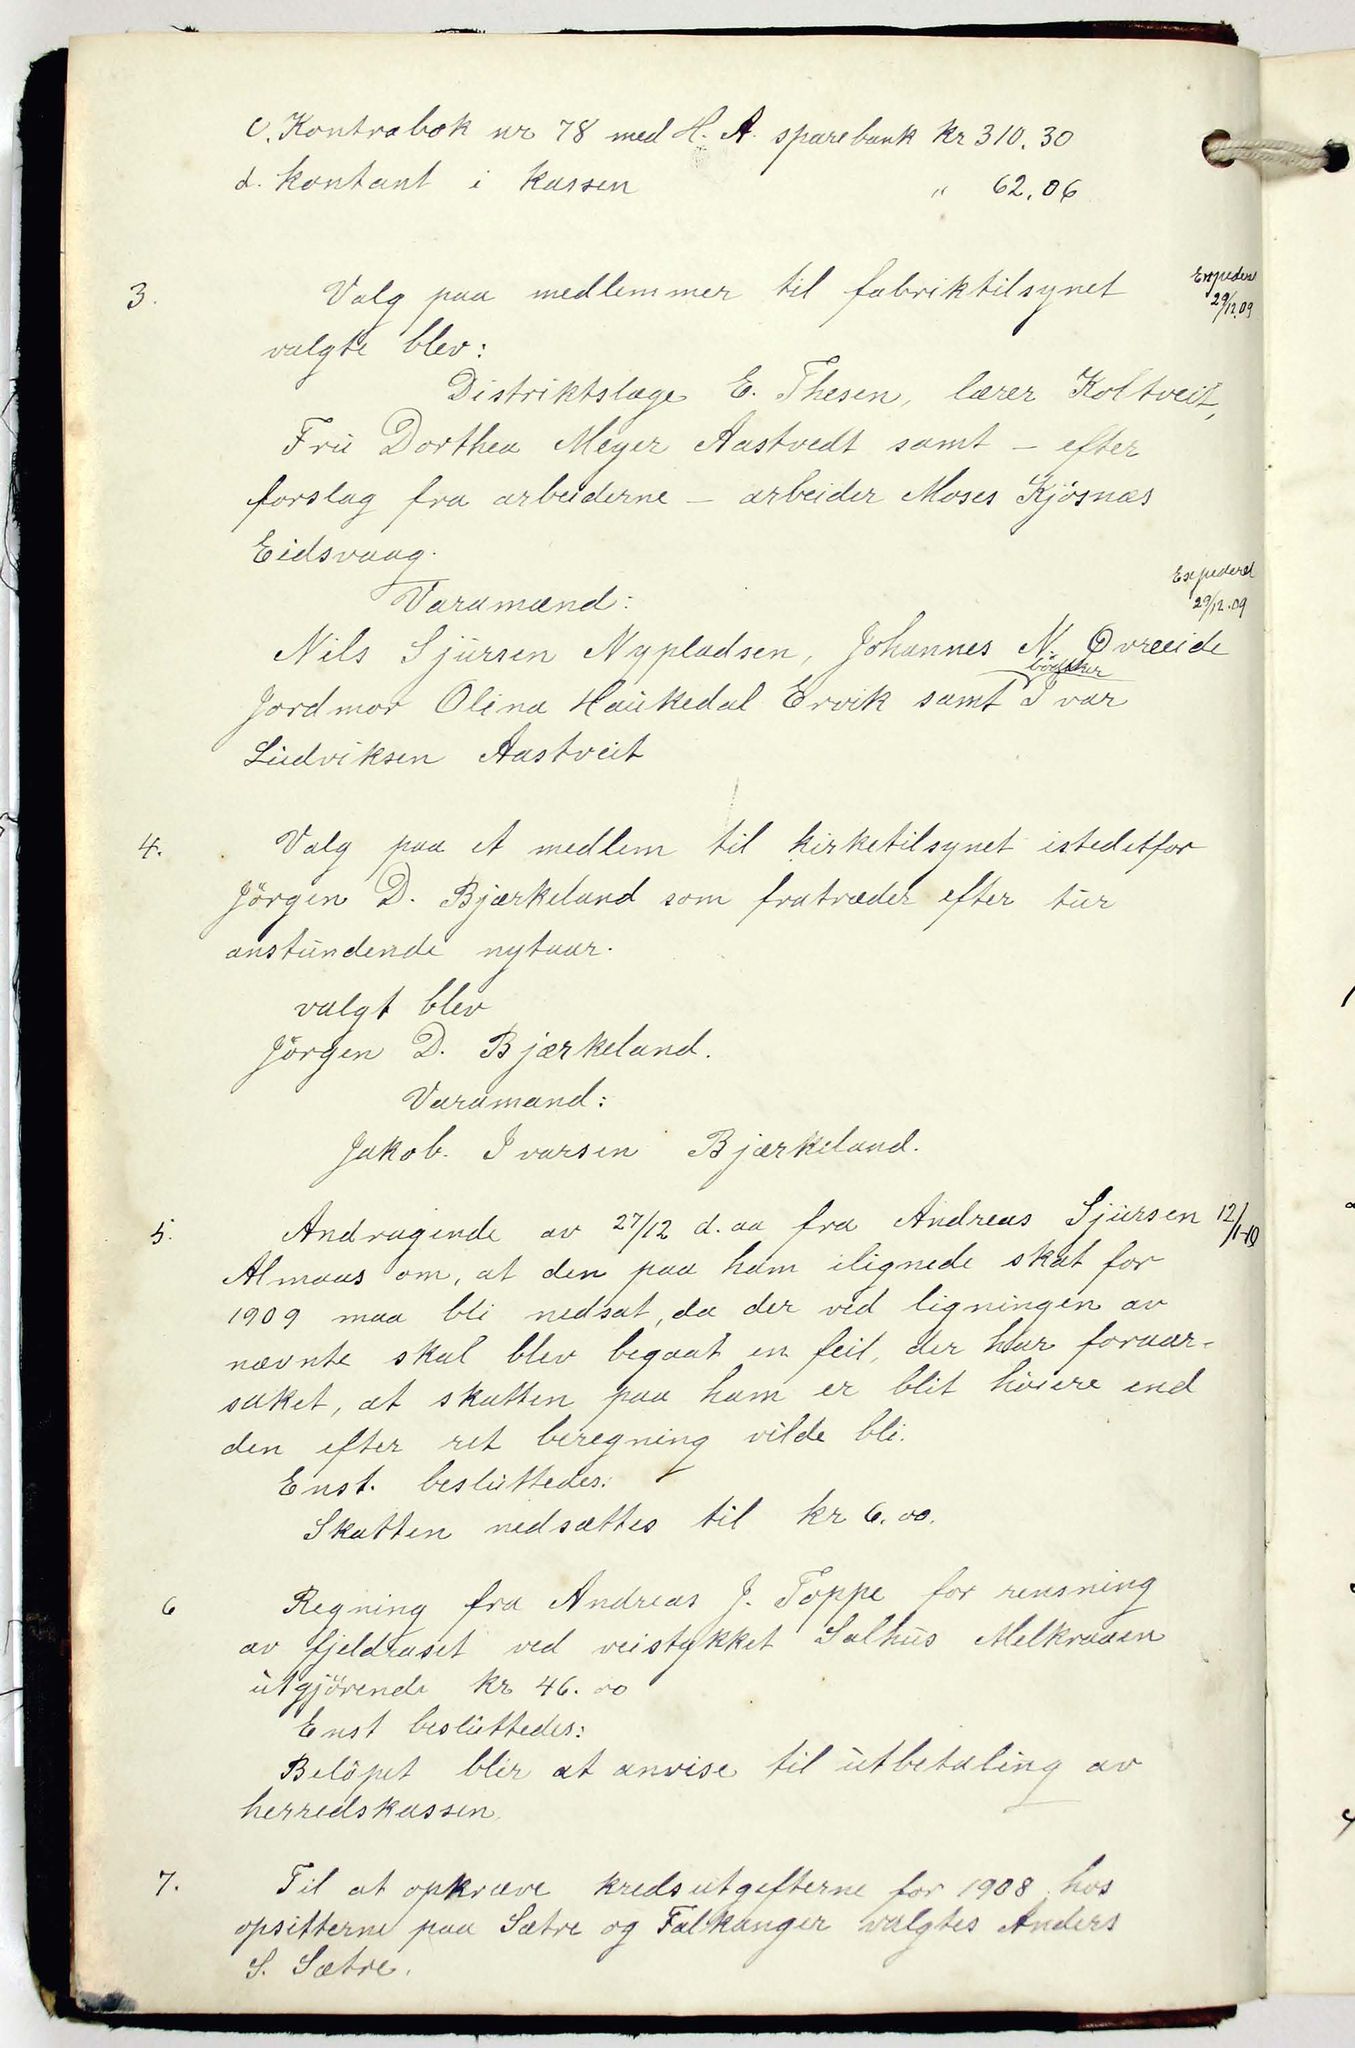 c. Kontrabok nr 78 med H. A. sparebank kr 310.30
d. kontant i kassen " 62.06
3. Valg paa medlemmer til fabriktilsynet
Expedert 29/12.09
valgte blev:
Distriktslæge E. Thesen, lærer Koltveit,
Fru Dorthea Meyer Aastvedt samt – efter
forslag fra arbeiderne – arbeider Moses Kjøsnæs
Eidsvaag.
Expederet 29/12.09
Varamænd:
Nils Sjursen Nypladsen, Johannes N. Øvreeide
bødtker
Jordmor Olina Haukedal Ervik samt Ivar
Ludviksen Aastveit
4. Valg paa et medlem til kirketilsynet istedetfor
Jörgen D. Bjærkeland som fratræder efter tur
anstundende nytaar.
valgt blev
Jörgen D. Bjærkeland.
Varamand:
Jakob Ivarsen Bjærkeland.
5. Andragende av 27/12 d. aa fra Andreas Sjursen 12/1-10
Almaas om, at den paa ham ilignede skat for
1909 maa bli nedsat, da der ved ligningen av
nævnte skal blev begaat en feil, der har foraar-
saket, at skatten paa ham er blit höiere end
den efter ret beregning vilde bli.
Enst. besluttedes:
Skatten nedsættes til kr 6.00.
6 Regning fra Andreas J. Toppe for rensning
av fjeldraset ved veistykket Salhus Melkraaen
utgjörende kr 46.00
Enst besluttedes:
Belöpet blir at anvise til utbetaling av
herredskassen.
7. Til at opkræve kredsutgifterne for 1908 hos
opsitterne paa Sætre og Falkanger valgtes Anders
S. Sætre.